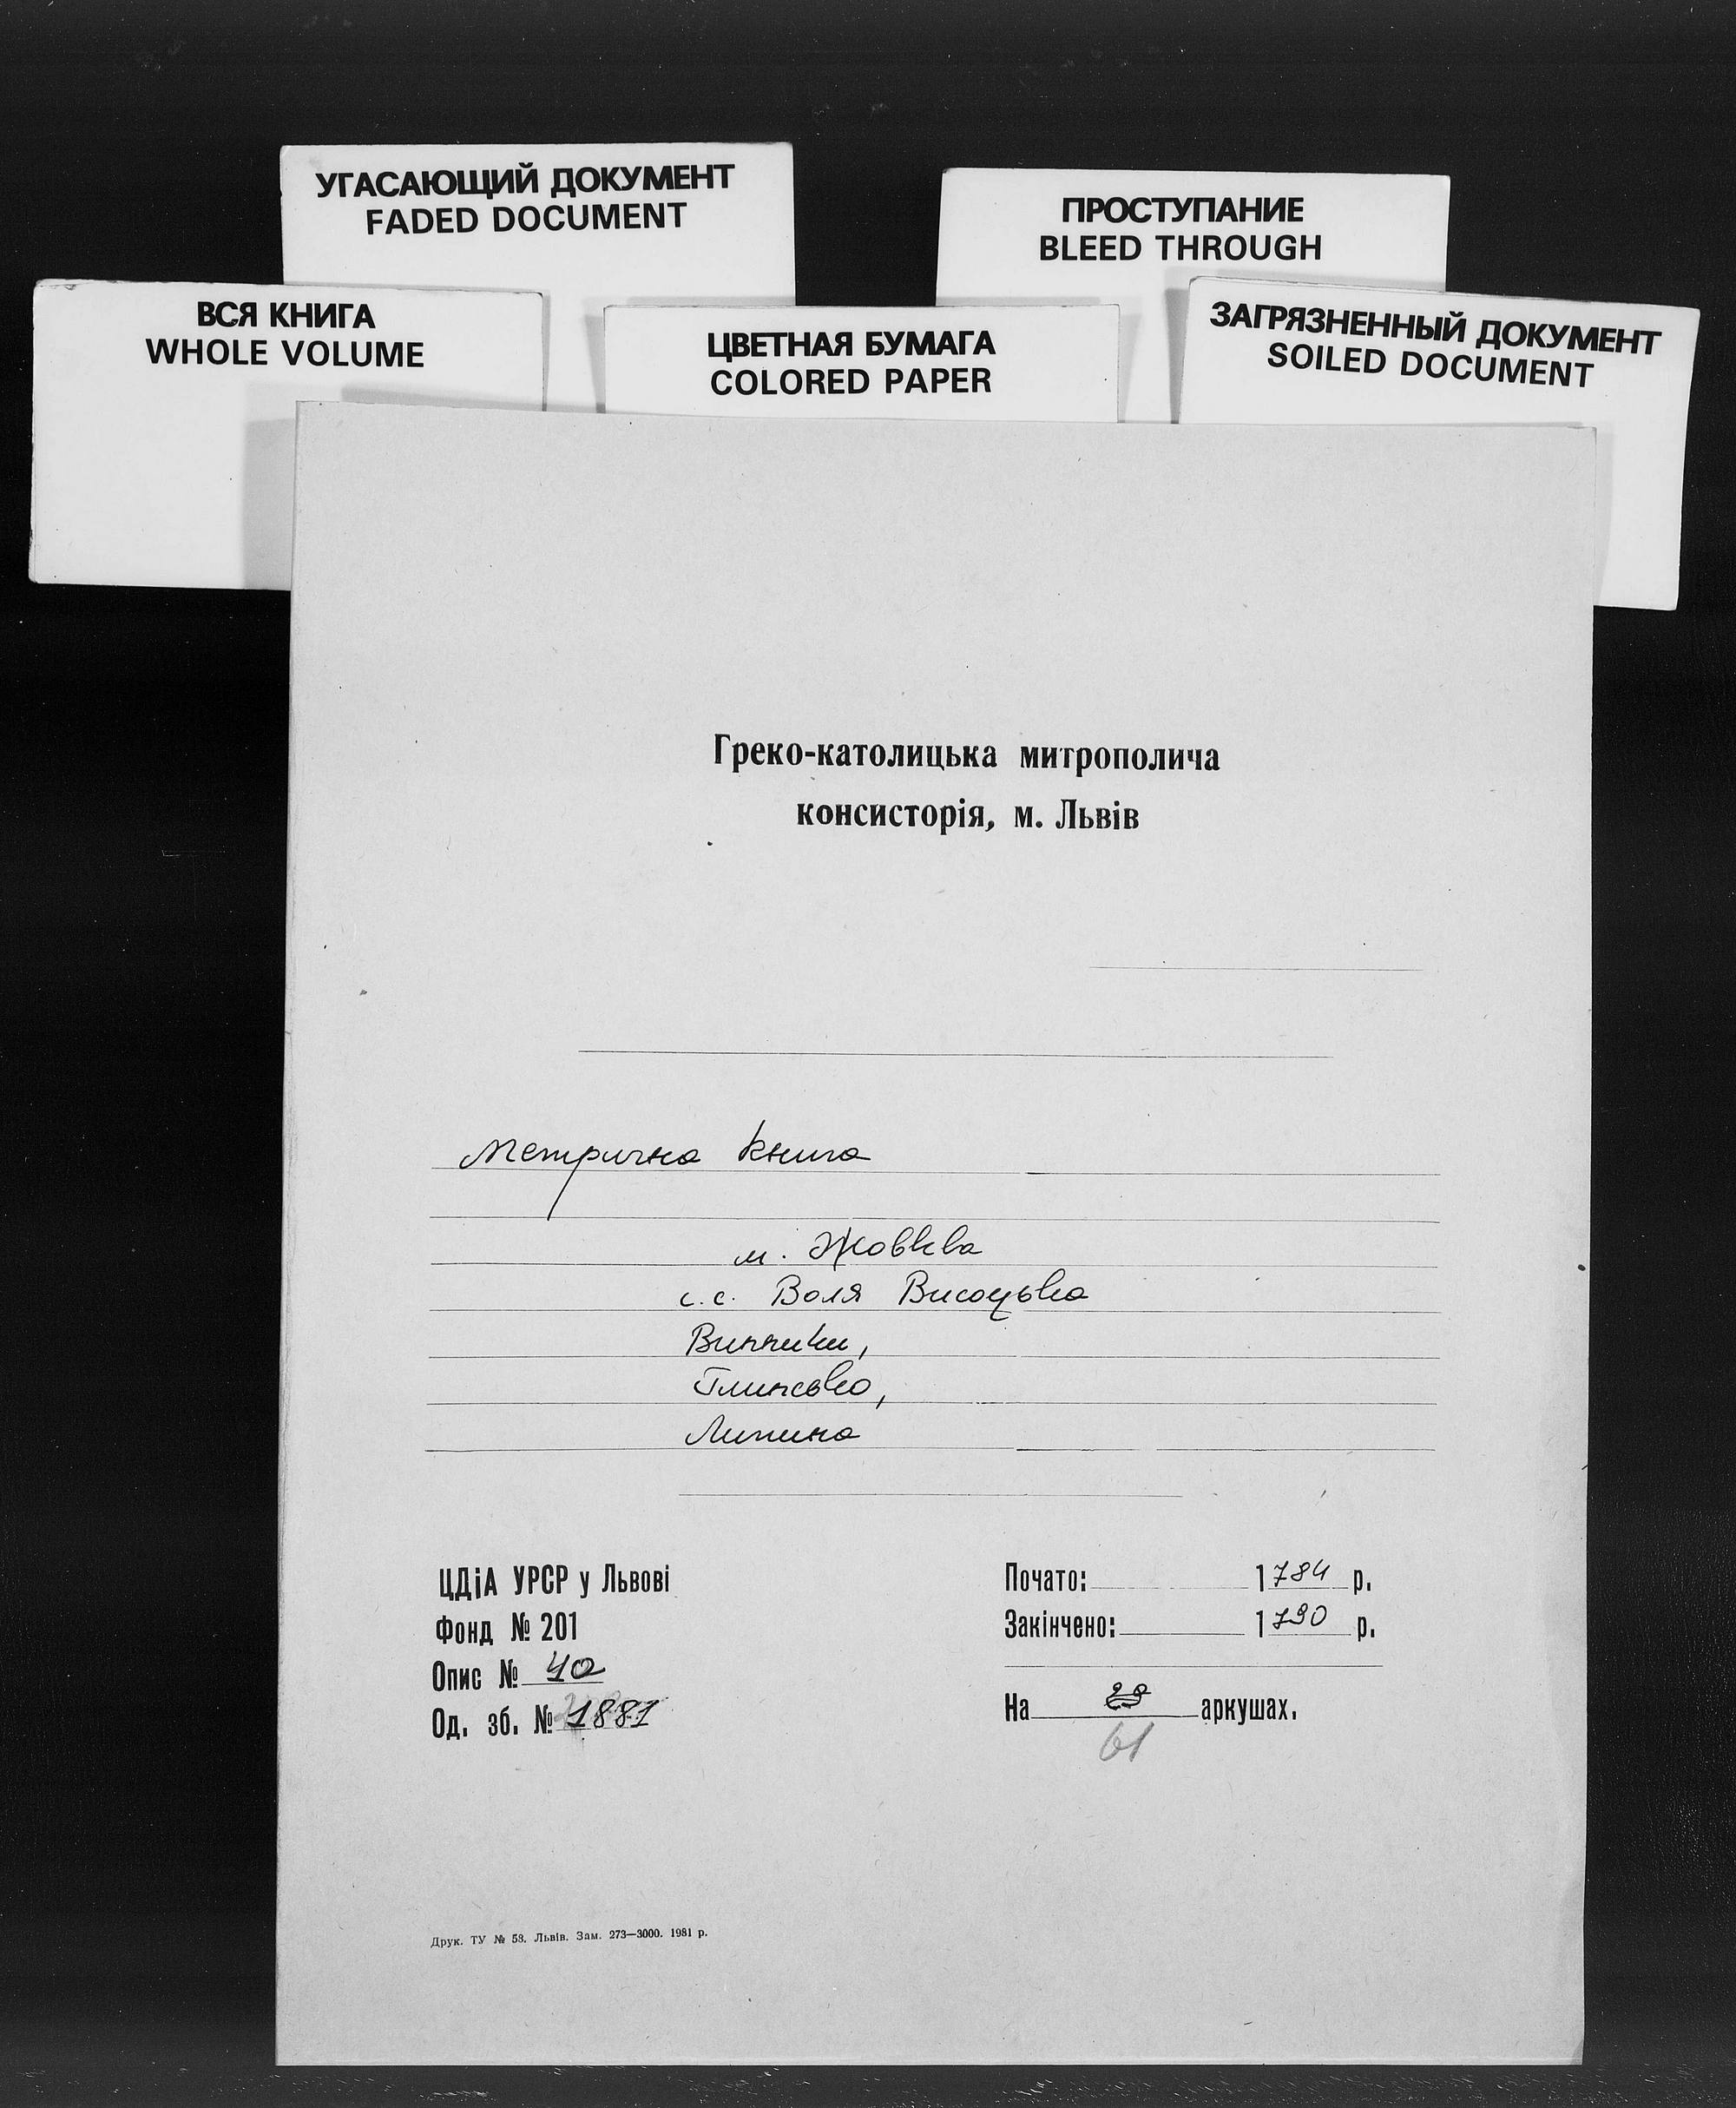 УГАСАЮЩИЙ ДОКУМЕНТ
FADED DOCUMENT
ПРОСТУПАНИЕ
BLEED THROUGH
ВСЯ КНИГА
WHOLE VOLUME
ЦВЕТНАЯ БУМАГА
COLORED PAPER
ЗАГРЯЗНЕННЫЙ ДОКУМЕНТ
SOILED DOCUMENT
Греко-католицька митрополича
консисторія, м. Львів
Метрична книга
м. Жовква
с.с. Воля Висоцька
Винники,
Глинсько,
Липина
ЦДіА УРСР у Львові
Фонд № 201
Опис № 4а
Од. зб. № 1881
Почато: 1784 р.
Закінчено: 1790 р.
На аркушах.
61
Друк. ТУ № 58. Львів. Зам. 273—3000. 1981 р.